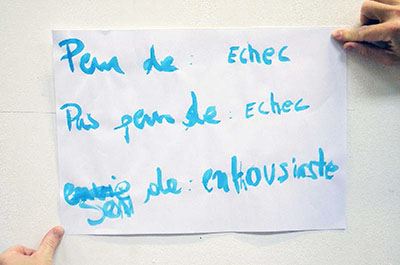 Peur de : Echec
Pas peur de : Echec
envie de : enthousiaste